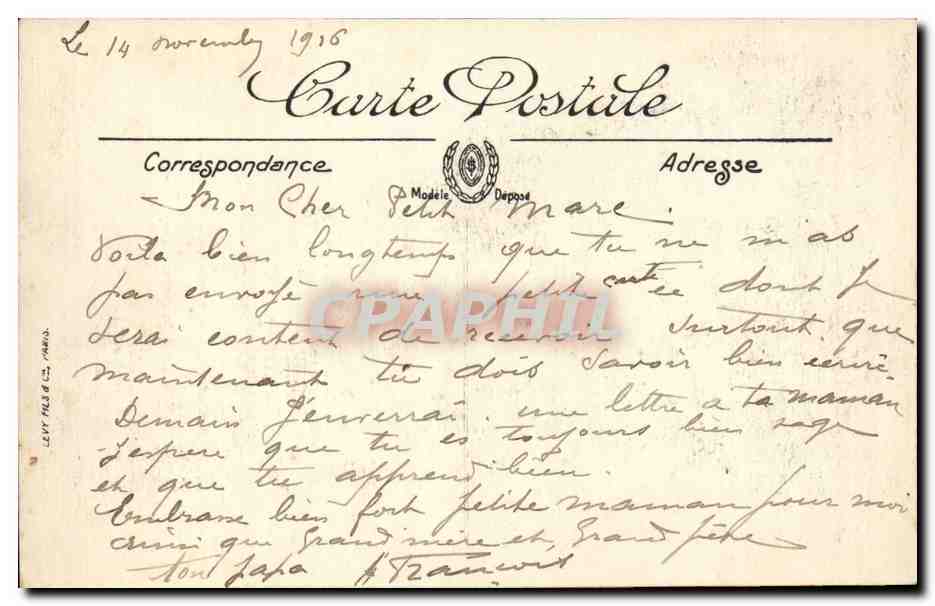 Le 14 novembre 1916
Carte Postale
Correspondance
Adresse
Modèle Déposé
Mon Cher Petit Marc.
Voila bien longtemps que tu ne m as
pas envoyé une petite carte ce dont Je
serai content de recevoir surtout que
maintenant tu dois savoir bien ecrire.
Demain J'enverrai une lettre a ta maman
J'espere que tu es toujours bien sage
et que tu apprend bien.
Embrasse bien fort petite maman pour moi
ainsi que Grand mère et Grand père
ton papa François
LEVY FILS & Cie, PARIS.
CPAPHIL